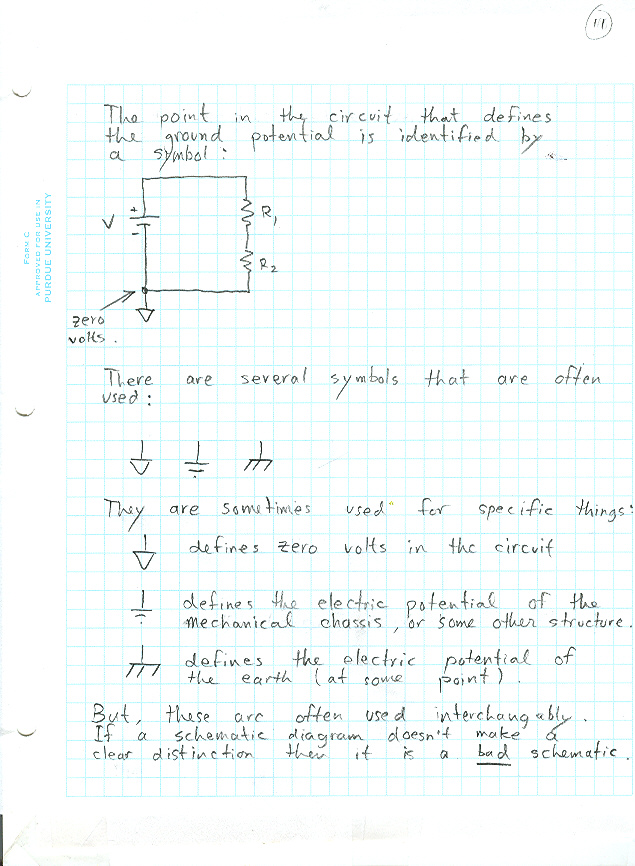 11
The point in the circuit that defines
the ground potential is identified by
a symbol :
FORM C
APPROVED FOR USE IN
PURDUE UNIVERSITY
V
+
-
R1
R2
zero
volts .
There are several symbols that are often
used :
They are sometimes used for specific things :
defines zero volts in the circuit
defines the electric potential of the
mechanical chassis , or some other structure .
defines the electric potential of
the earth ( at some point ) .
But , these are often used interchangably .
If a schematic diagram doesn't make a
clear distinction then it is a bad schematic .